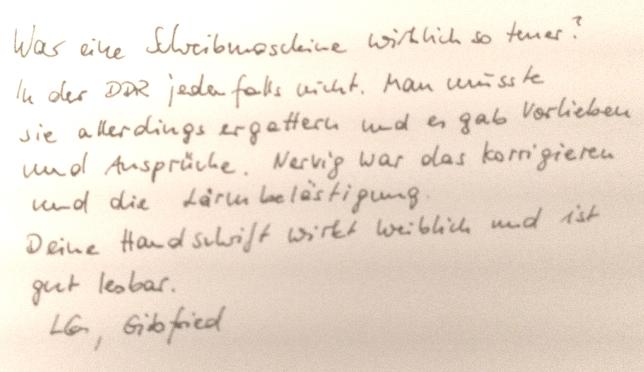 War eine Schreibmaschine wirklich so teuer?
In der DDR jedenfalls nicht. Man musste
sie allerdings ergattern und es gab Vorlieben
und Ansprüche. Nervig war das korrigieren
und die Lärmbelästigung.
Deine Handschrift wirkt weiblich und ist
gut lesbar.
LG, Gibsfried